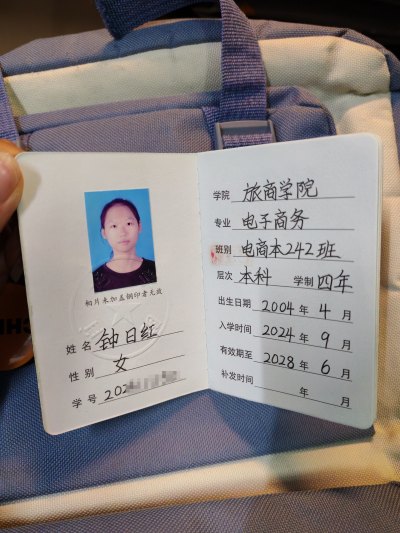 相片未加盖钢印者无效
姓名 钟日红
性别 女
学号 202
学院 旅商学院
专业 电子商务
班别 电商本242班
层次 本科 学制 四年
出生日期 2004 年 4 月
入学时间 2024 年 9 月
有效期至 2028 年 6 月
补发时间 年 月